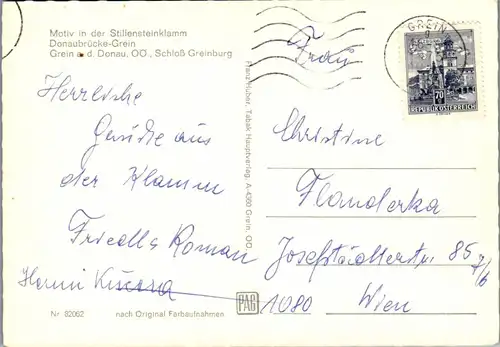 Motiv in der Stillensteinklamm
Donaubrücke-Grein
Grein a. d. Donau, OÖ., Schloß Greinburg
Herrliche
Grüße aus
der Klamm
Friedl & Roman
Hanni
Nr. 92062
nach Original Farbaufnahmen
Franz Huber, Tabak Hauptverlag A-4360 Grein, OÖ.
PAG
GREIN
70
REPUBLIK ÖSTERREICH
Frau
Christine
Flanderka
Josefstädterstr. 85
7/6
1080
Wien